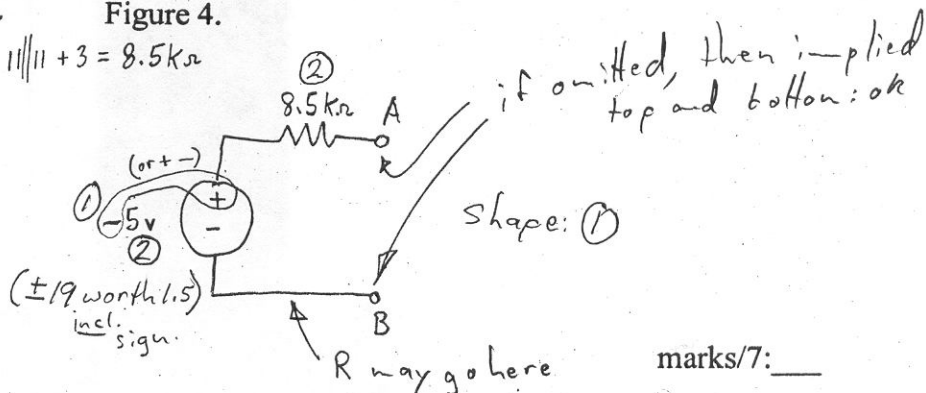 Figure 4.
11||11 + 3 = 8.5KΩ
②
8.5KΩ
A
if omitted, then implied
top and bottom: ok
(or + -)
①
+
-5v
-
②
Shape: ①
(±19 worth 1.5)
incl.
sign.
B
R may go here
marks/7:___